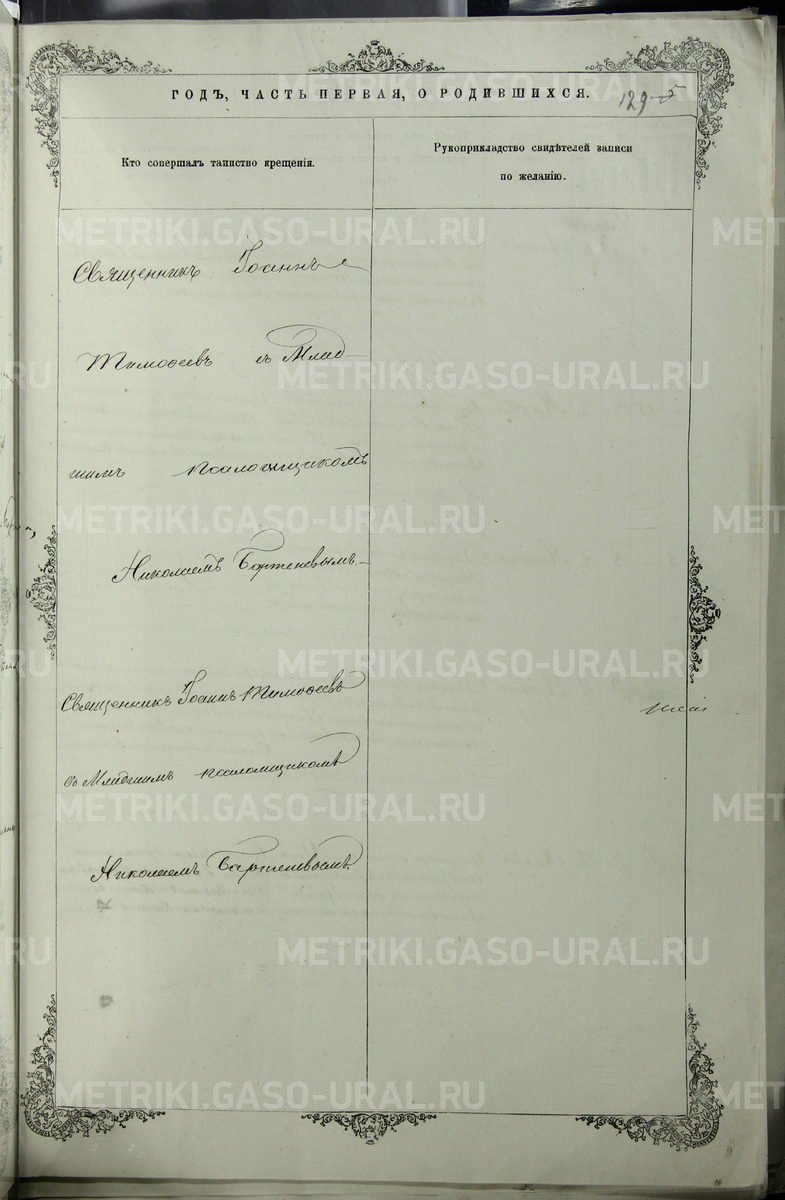 ГОДЪ, ЧАСТЬ ПЕРВАЯ, О РОДИВШИХСЯ.
129
Кто совершалъ таинство крещенія.
Рукоприкладство свидѣтелей записи
по желанію.
Священникъ Іоаннъ
Тимоѳеевъ съ Млад-
шимъ псаломщикомъ
Николаемъ Барженевымъ.
Священникъ Іоаннъ Тимоѳеевъ
съ Младшимъ псаломщикомъ
Николаемъ Барженевымъ.
METRIKI.GASO-URAL.RU